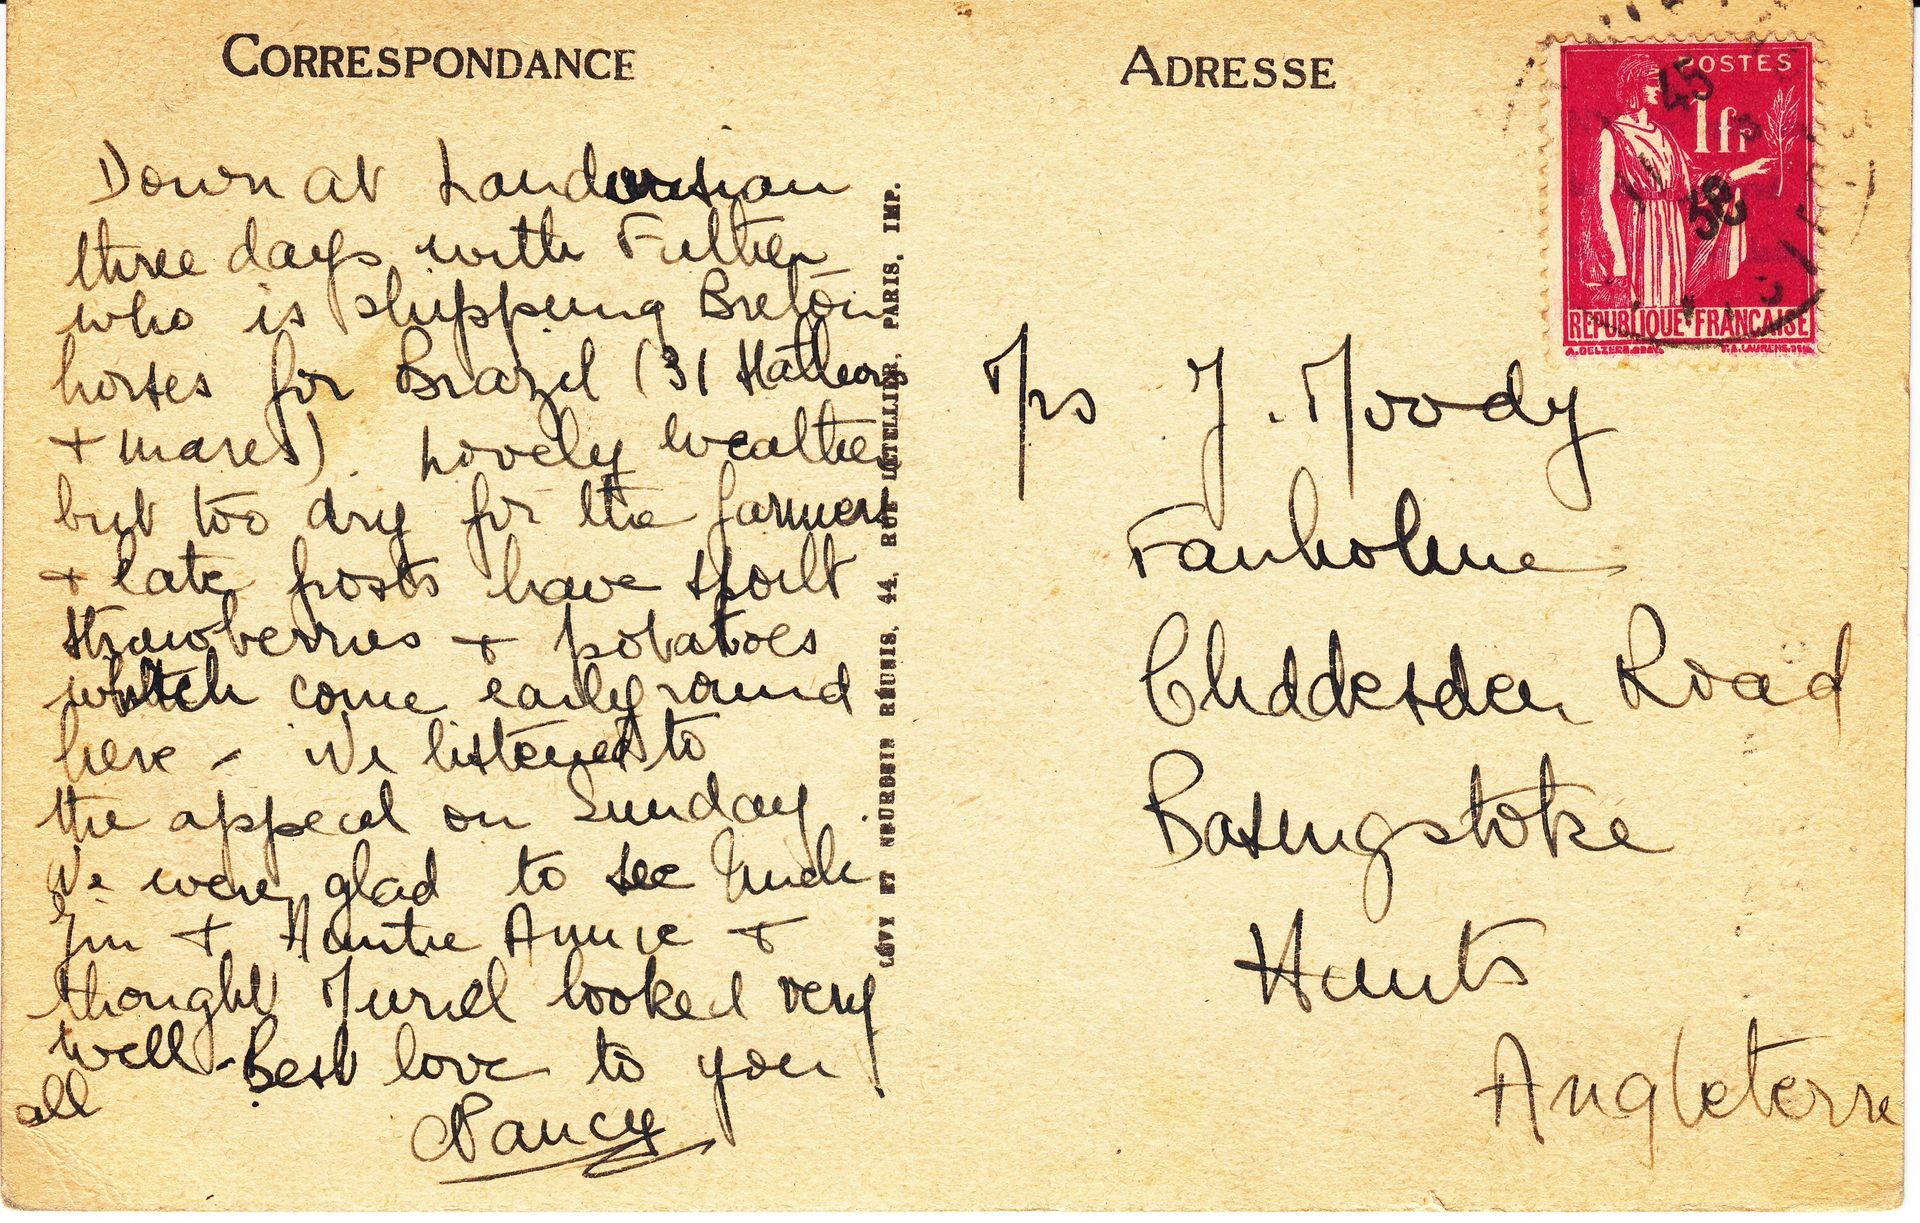 CORRESPONDANCE
Down at
three days with
who is shipping Breton
horses for Brazil (31
+ mares). Lovely weather
but too dry for the farmers
+ late frosts have spoilt
strawberries + potatoes
which come early round
here - We listened to
the appeal on Sunday
We were glad to see Uncle
Jim + Auntie Annie +
thought Muriel looked very
well - Best love to you
all
Nancy
LÉVY ET NEURDEIN RÉUNIS, 44, RUE LETELLIER, PARIS, IMP.
ADRESSE
POSTES
1fr
RÉPUBLIQUE FRANÇAISE
45
38
Mrs J. Moody
Fanholme
Cliddesden Road
Basingstoke
Hants
Angleterre